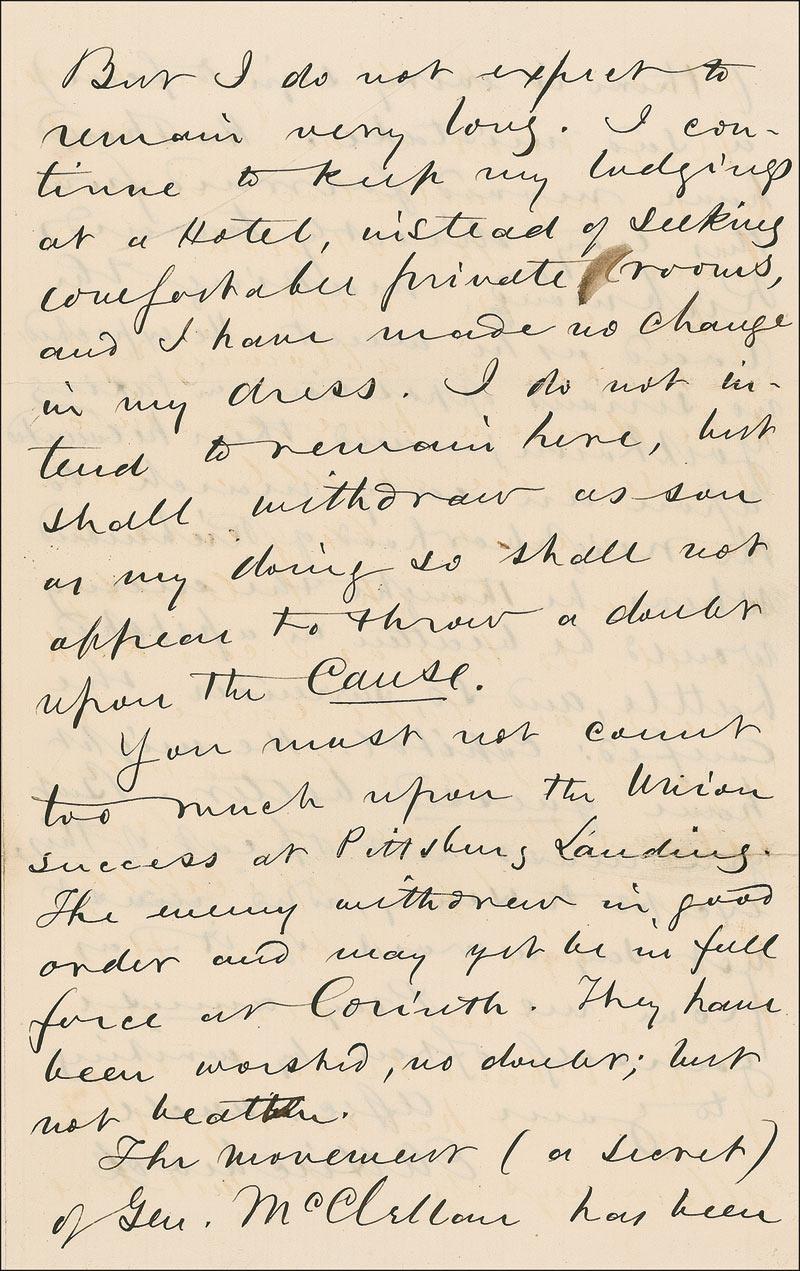 But I do not expect to
remain very long. I con-
tinue to keep my lodgings
at a Hotel, instead of seeking
comfortable private rooms,
and I have made no change
in my dress. I do not in-
tend to remain here, but
shall withdraw as soon
as my doing so shall not
appear to throw a doubt
upon the Cause.
You must not count
too much upon the Union
success at Pittsburg Landing.
The enemy withdrew in good
order and may yet be in full
force at Corinth. They have
been worsted, no doubt; but
not beaten.
The movement (a secret)
of Gen. McClellan has been